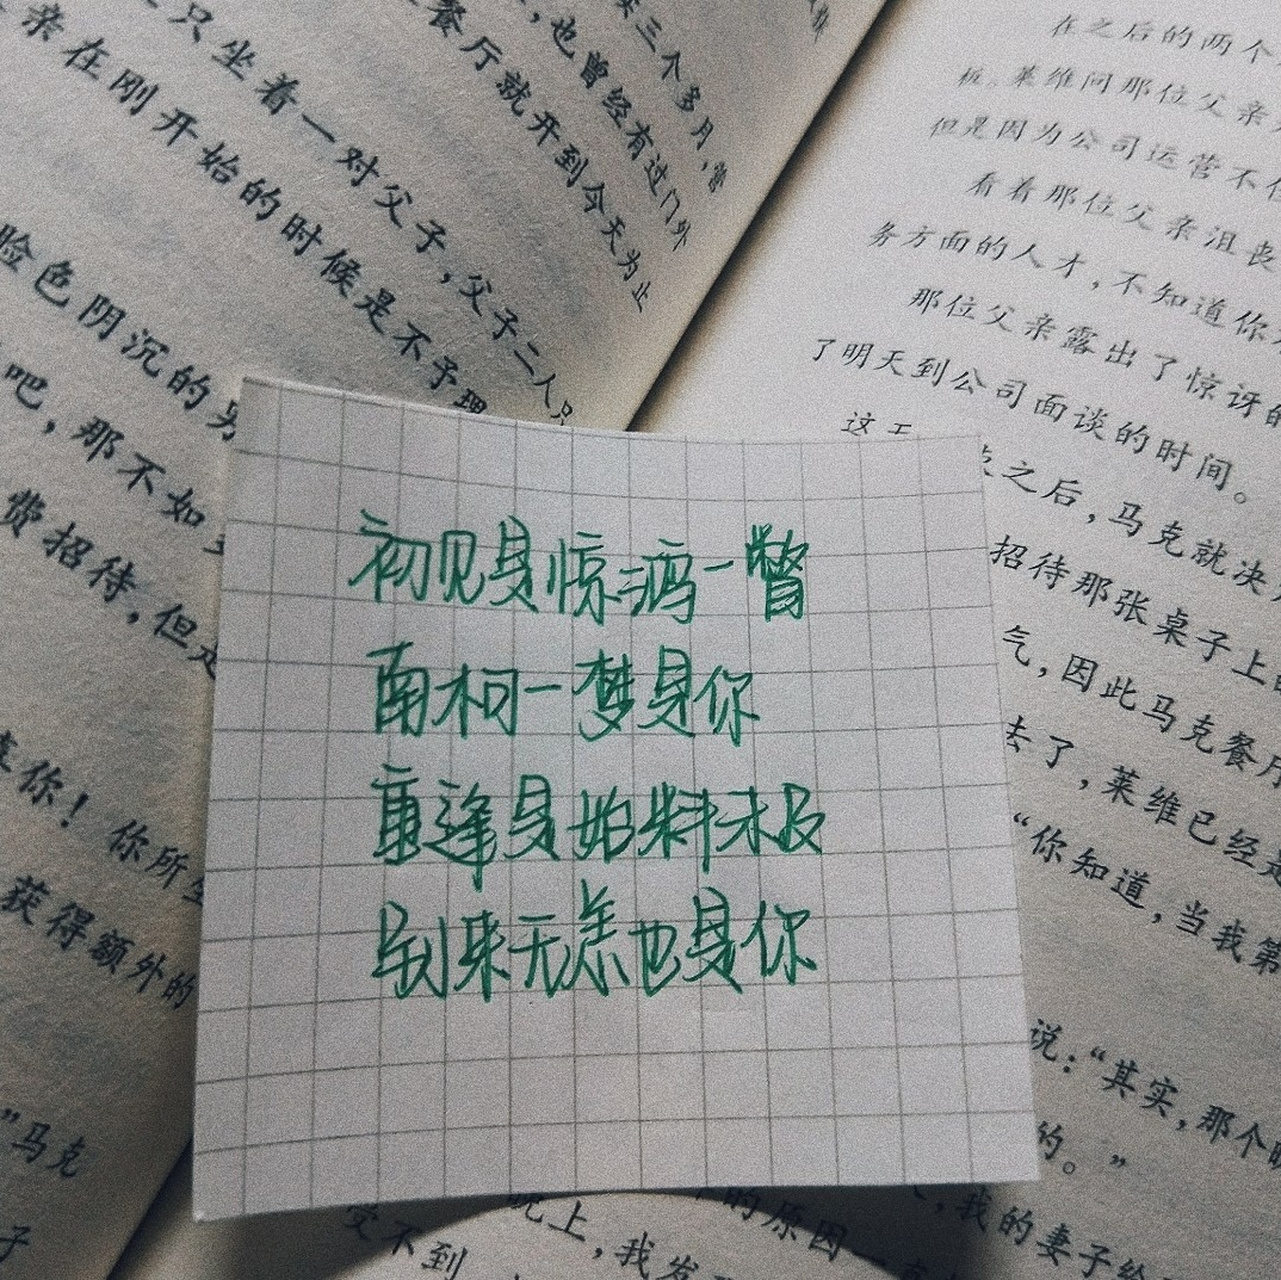 初见是惊鸿一瞥
南柯一梦是你
重逢是始料未及
别来无恙也是你
三个多月，营
，也曾经有过门外
餐厅就开到今天为止
只坐着一对父子，父子二人只
亲在刚开始的时候是不予理
脸色阴沉的男
吧，那不如
费招待，但是
你！你所
获得额外的
”马克
子
在之后的两个
板。莱维问那位父亲
但是因为公司运营不
看着那位父亲沮丧
务方面的人才，不知道你
那位父亲露出了惊讶的
了明天到公司面谈的时间。
这天
之后，马克就决
招待那张桌子上的
气，因此马克餐厅
去了，莱维已经是
“你知道，当我第
说：“其实，那个
的。”
，我的妻子给
的原因一
晚上，我发
受不到